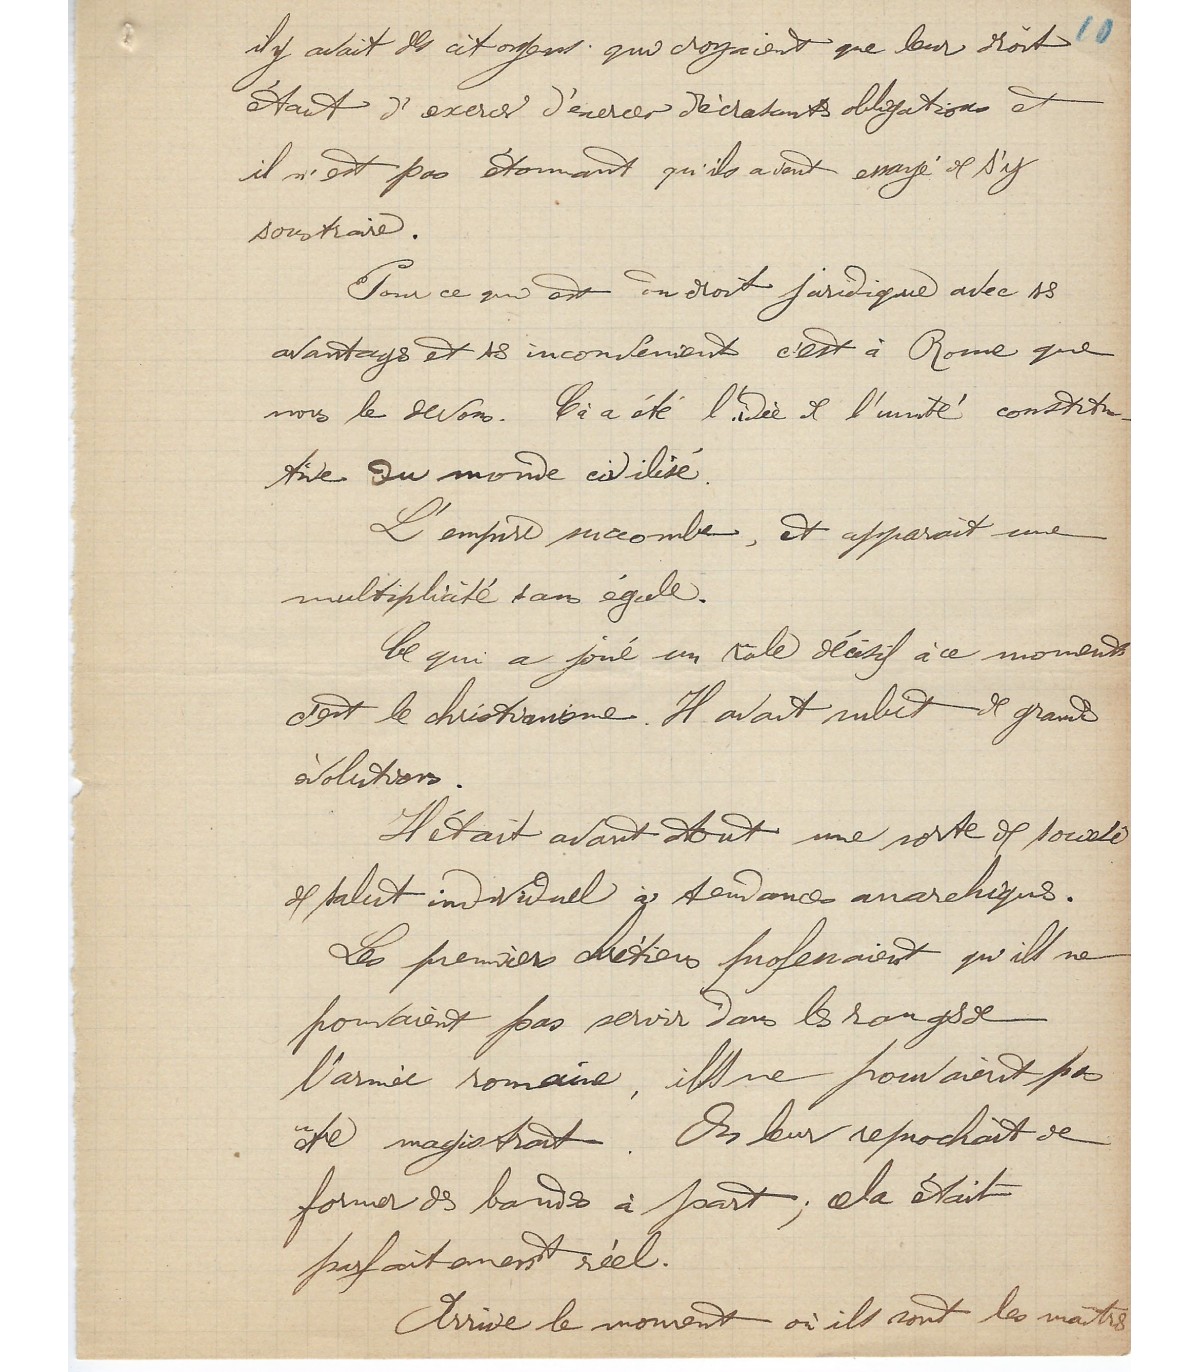 10
il y avait des citoyens qui croyaient que leur droit
était d'exercer d'énormes d'écrasants obligations et
il n'est pas étonnant qu'ils aient essayé de s'y
soustraire.
Pour ce qui est du droit juridique avec ses
avantages et ses inconvenients c'est à Rome que
nous le devons. Cà a été l'idée de l'unité constitu-
tive du monde civilisé.
L'empire succombe, et apparait une
multiplicité sans égale.
Ce qui a joué un role décisif à ce moment
c'est le christianisme. Il avait subit de grande
évolutions.
Il était avant tout une sorte de société
de salut individuel à tendances anarchiques.
Les premiers chrétiens professaient qu'ills ne
pouvaient pas servir dans les rangs de
l'armée romaine, ills ne pouvaient pas
être magistrat. On leur reprochait de
former des bandes à part; cela était
parfaitement réel.
Arrive le moment où ils sont les maîtres